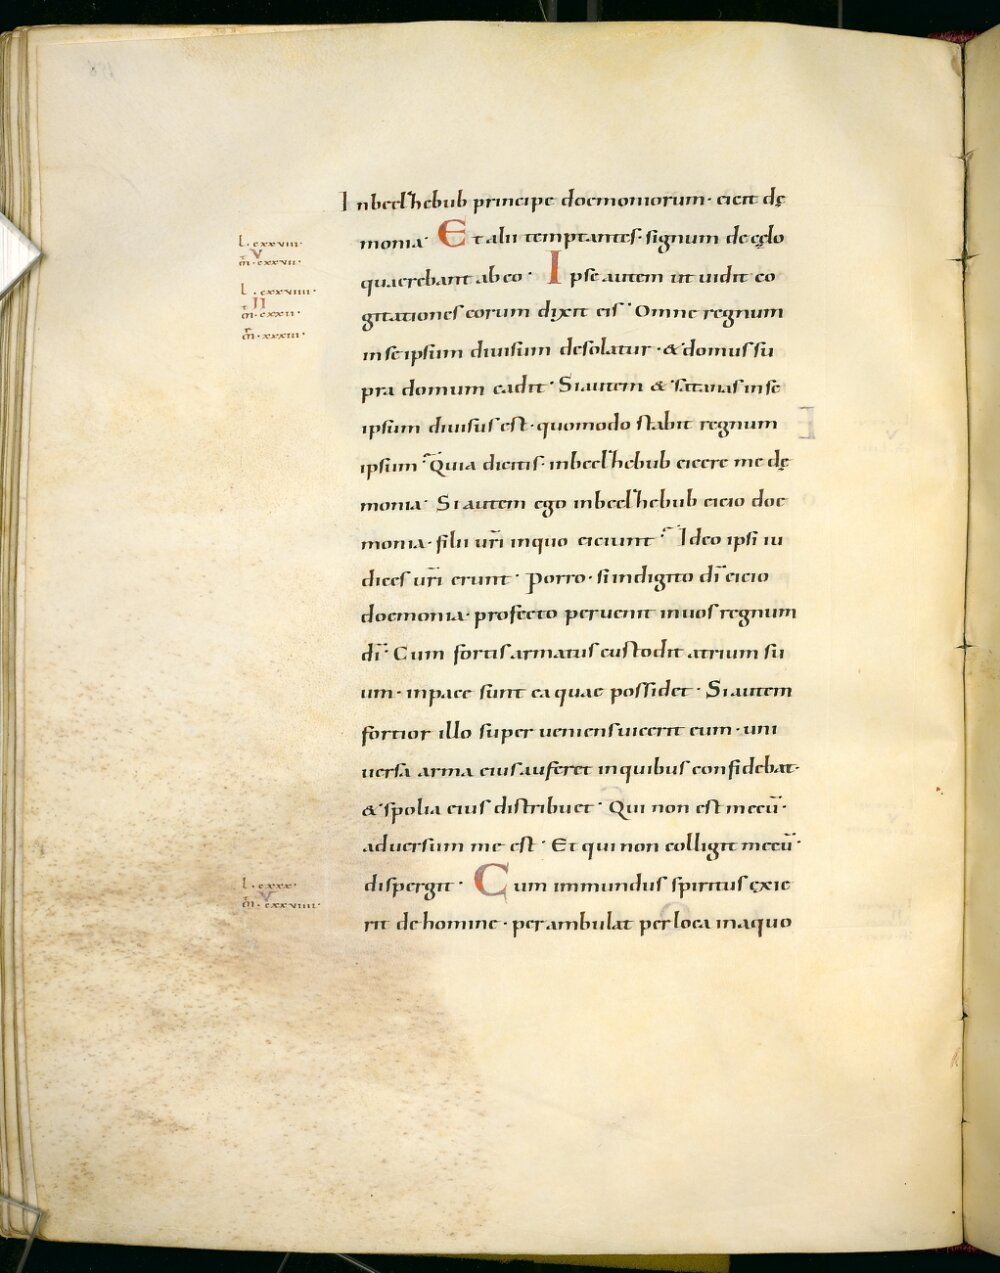 Inbeelhebub principe doemoniorum · eicit dę
monia · Et alii temptantes · signum de cęlo
quaerebant ab eo · Ipse autem ut uidit co
gitationes eorum dixit eis · Omne regnum
in se ipsum diuisum desolatur · & domus su
pra domum cadit · Si autem & satanas in se
ipsum diuisus est · quomodo stabit regnum
ipsum · Quia dicitis · inbeelhebub eicere me dę
monia · Si autem ego inbeelhebub eicio doe
monia · filii ur̄i inquo eiciunt · Ideo ipsi iu
dices ur̄i erunt · Porro · si indigito dī eicio
doemonia · profecto peruenit inuos regnum
dī · Cum fortis armatus custodit atrium su
um · inpace sunt ea quae possidet · Si autem
fortior illo super ueniens uicerit eum · uni
uersa arma eius auferet inquibus confidebat ·
& spolia eius distribuet · Qui non est mecū ·
aduersum me est · Et qui non colligit mecū ·
dispergit · Cum immundus spiritus exie
rit de homine · perambulat per loca inaquo
l · cxxviii ·
v
m̄ · cxxvii ·
l · cxxviiii ·
II
m̄ · cxxii ·
m̄r · xxxiii ·
l · cxxx ·
v
m̄ · cxxviiii ·